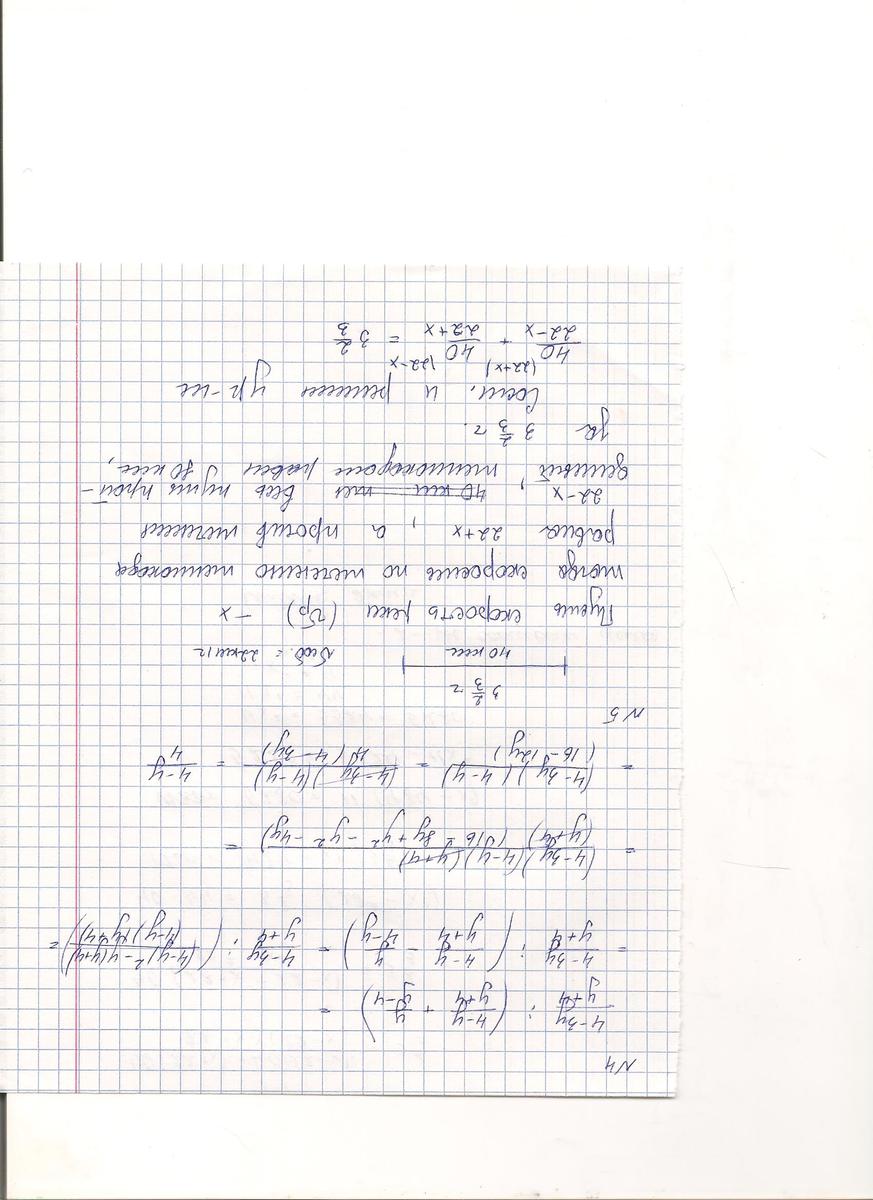 N4
(4-3y)/(y+4) : ((4-y)/(y+4) + y/(y-4)) =
= (4-3y)/(y+4) : ((4-y)/(y+4) - y/(4-y)) = (4-3y)/(y+4) : (((4-y)²-y(y+4))/((4-y)(y+4))) =
= (4-3y)(4-y)(y+4)/((y+4)(16-8y+y²-y²-4y)) =
= (4-3y)(4-y)/(16-12y) = (4-3y)(4-y)/(4(4-3y)) = (4-y)/4
N5
3 2/3 ч
40 км Vсоб. = 22км/ч
Пусть скорость реки (Vр) - x
тогда скорость по течению теплохода
равна 22+x, а против течения
22-x 40 км Весь путь прой-
денный, теплоходом равен 80 км,
за 3 2/3 ч.
Сост. и решим ур-ие
(22+x) (22-x
40/(22-x) + 40/(22+x) = 3 2/3